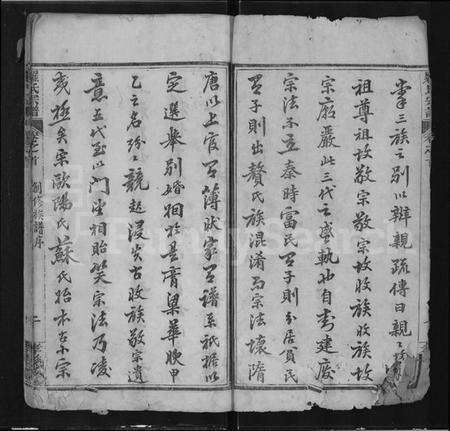 掌三族之別以辨親疏傳曰親親故
祖尊祖故敬宗敬宗故收族收族故
宗廟嚴此三代之盛軌也自封建廢
宗法不立秦時富民有子則分居貧民
有子則出贅氏族混淆而宗法壞隋
唐以上官有簿狀家有譜系祇據以
定選舉別婚姻於是膏粱華腴甲
乙之名紛紛競起浸失古收族敬宗遺
意五代至以門望相貽笑宗法乃凌
夷極矣宋歐陽氏蘇氏始本古小宗
氏宗譜
卷之首
創修族譜序
二
FamilySearch